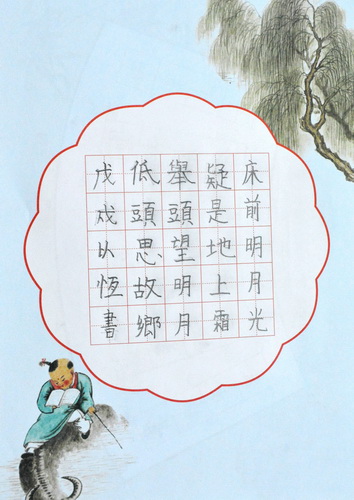 床前明月光
疑是地上霜
舉頭望明月
低頭思故鄉
戊戌以恆書